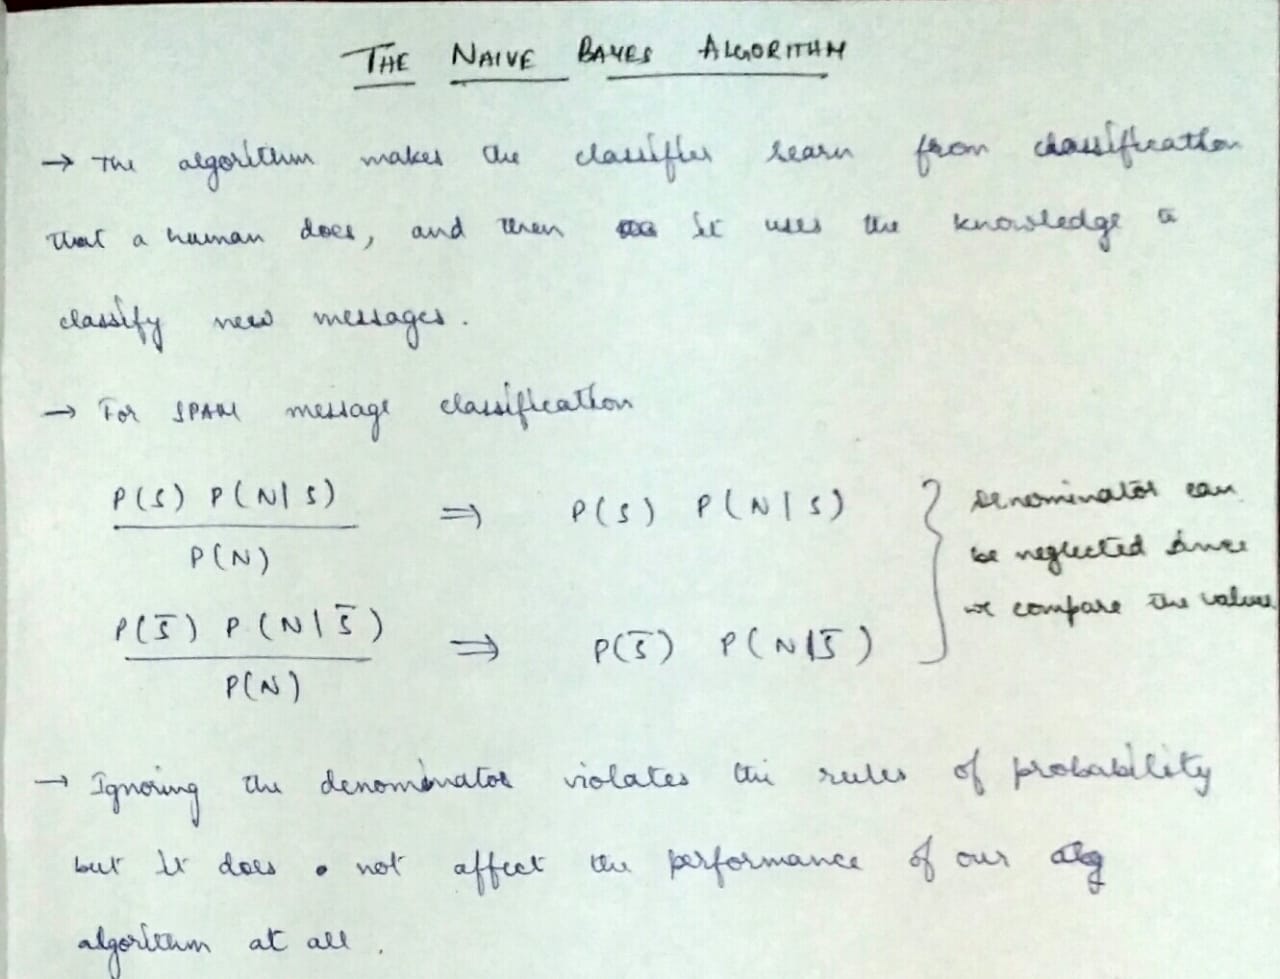 THE NAIVE BAYES ALGORITHM
→ The algorithm makes the classifier learn from classification
that a human does, and then it uses the knowledge to
classify new messages.
→ For SPAM message classification
P(S) P(N|S) / P(N) ⇒ P(S) P(N|S)
P(S̄) P(N|S̄) / P(N) ⇒ P(S̄) P(N|S̄)
Denominator can
be neglected since
we compare the values
→ Ignoring the denominator violates the rules of probability
but it does not affect the performance of our
algorithm at all.